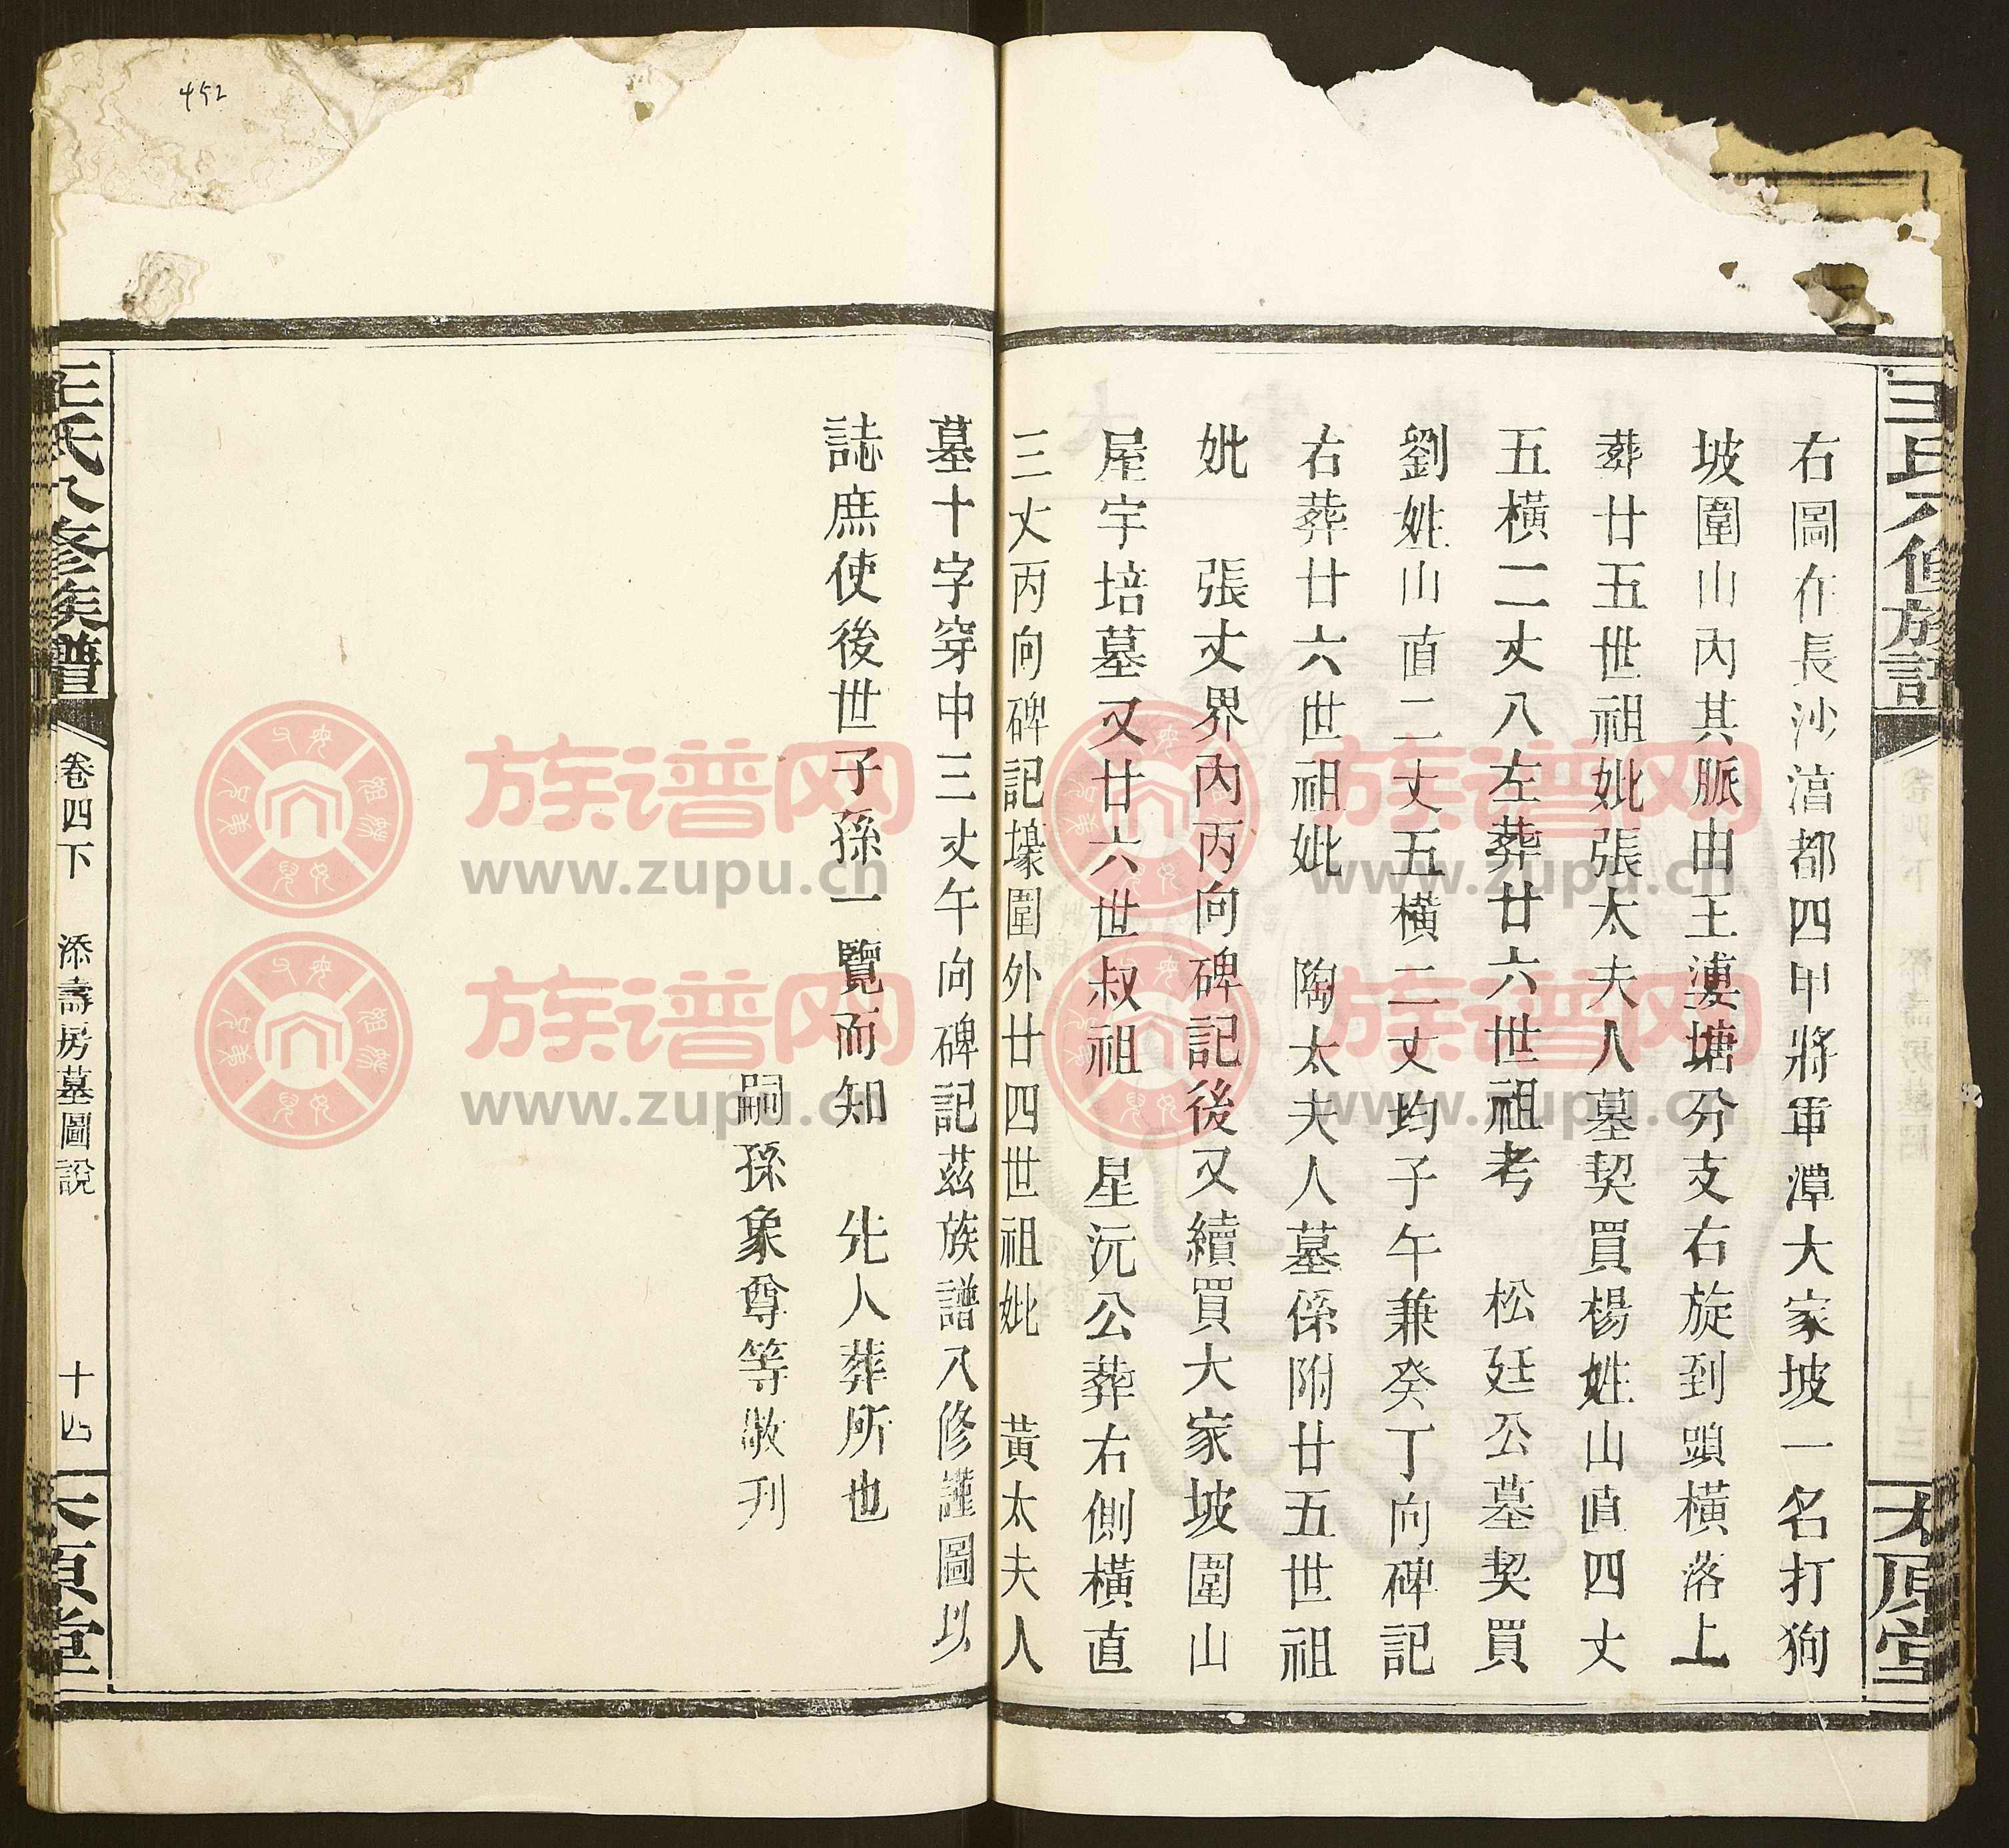 王氏八修族譜
太原堂
右圖在長沙㵑都四甲將軍潭大家坡一名打狗
坡圍山內其脈由王漊塘分支右旋到頭橫落上
葬廿五世祖妣張太夫人墓契買楊姓山直四丈
五橫二丈八左葬廿六世祖考 松廷公墓契買
劉姓山直二丈五橫二丈均子午兼癸丁向碑記
右葬廿六世祖妣 陶太夫人墓係附廿五世祖
妣 張丈界內丙向碑記後又續買大家坡圍山
屋宇培墓又廿六世叔祖 星沅公葬右側橫直
三丈丙向碑記壕圍外廿四世祖妣 黃太夫人
墓十字穿中三丈午向碑記茲族譜八修謹圖以
誌庶使後世子孫一覽而知 先人葬所也
嗣孫象尊等敬刊
王氏八修族譜
卷四下 添壽房墓圖說 十四
太原堂
452
族谱网
www.zupu.cn
族谱网
www.zupu.cn
族谱网
www.zupu.cn
族谱网
www.zupu.cn